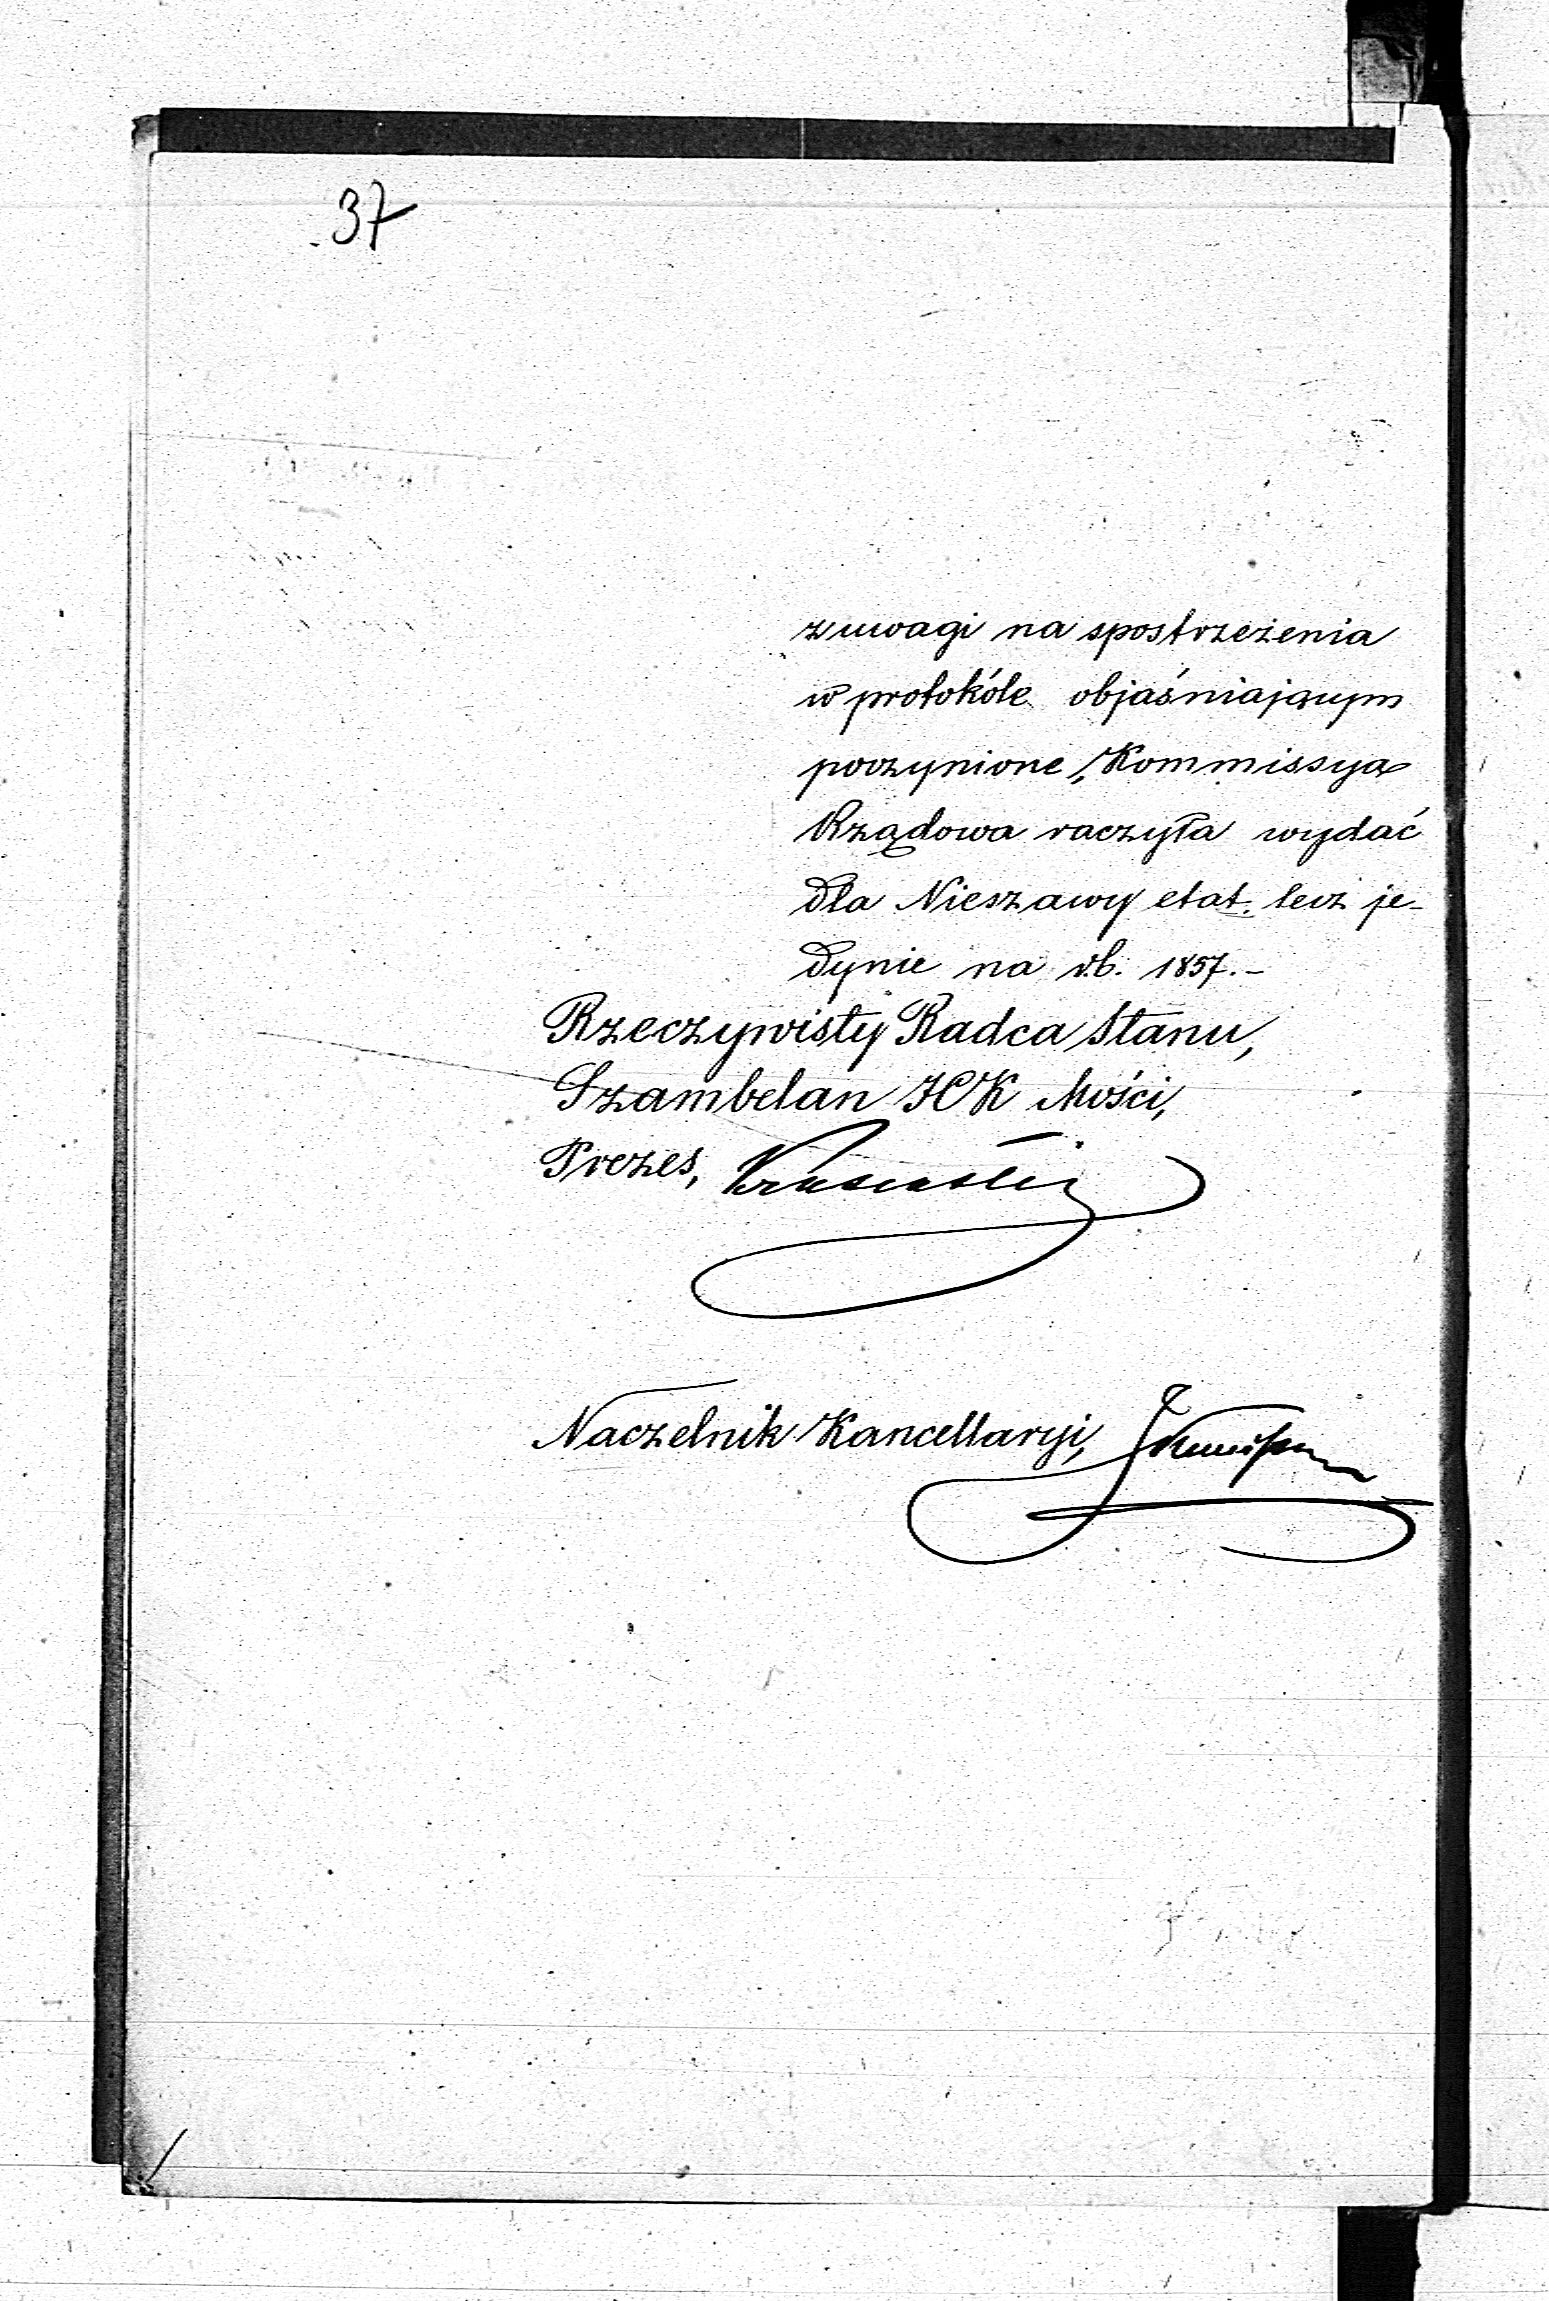 37
z uwagi na spostrzeżenia
w protokóle objaśniającym
poczynione, Kommissya
Rządowa raczyła wydać
dla Nieszawy etat. lecz je-
dynie na r.b. 1857.-
Rzeczywisty Radca Stanu,
Szambelan JCK Mości,
Prezes,
Naczelnik Kancellaryi,